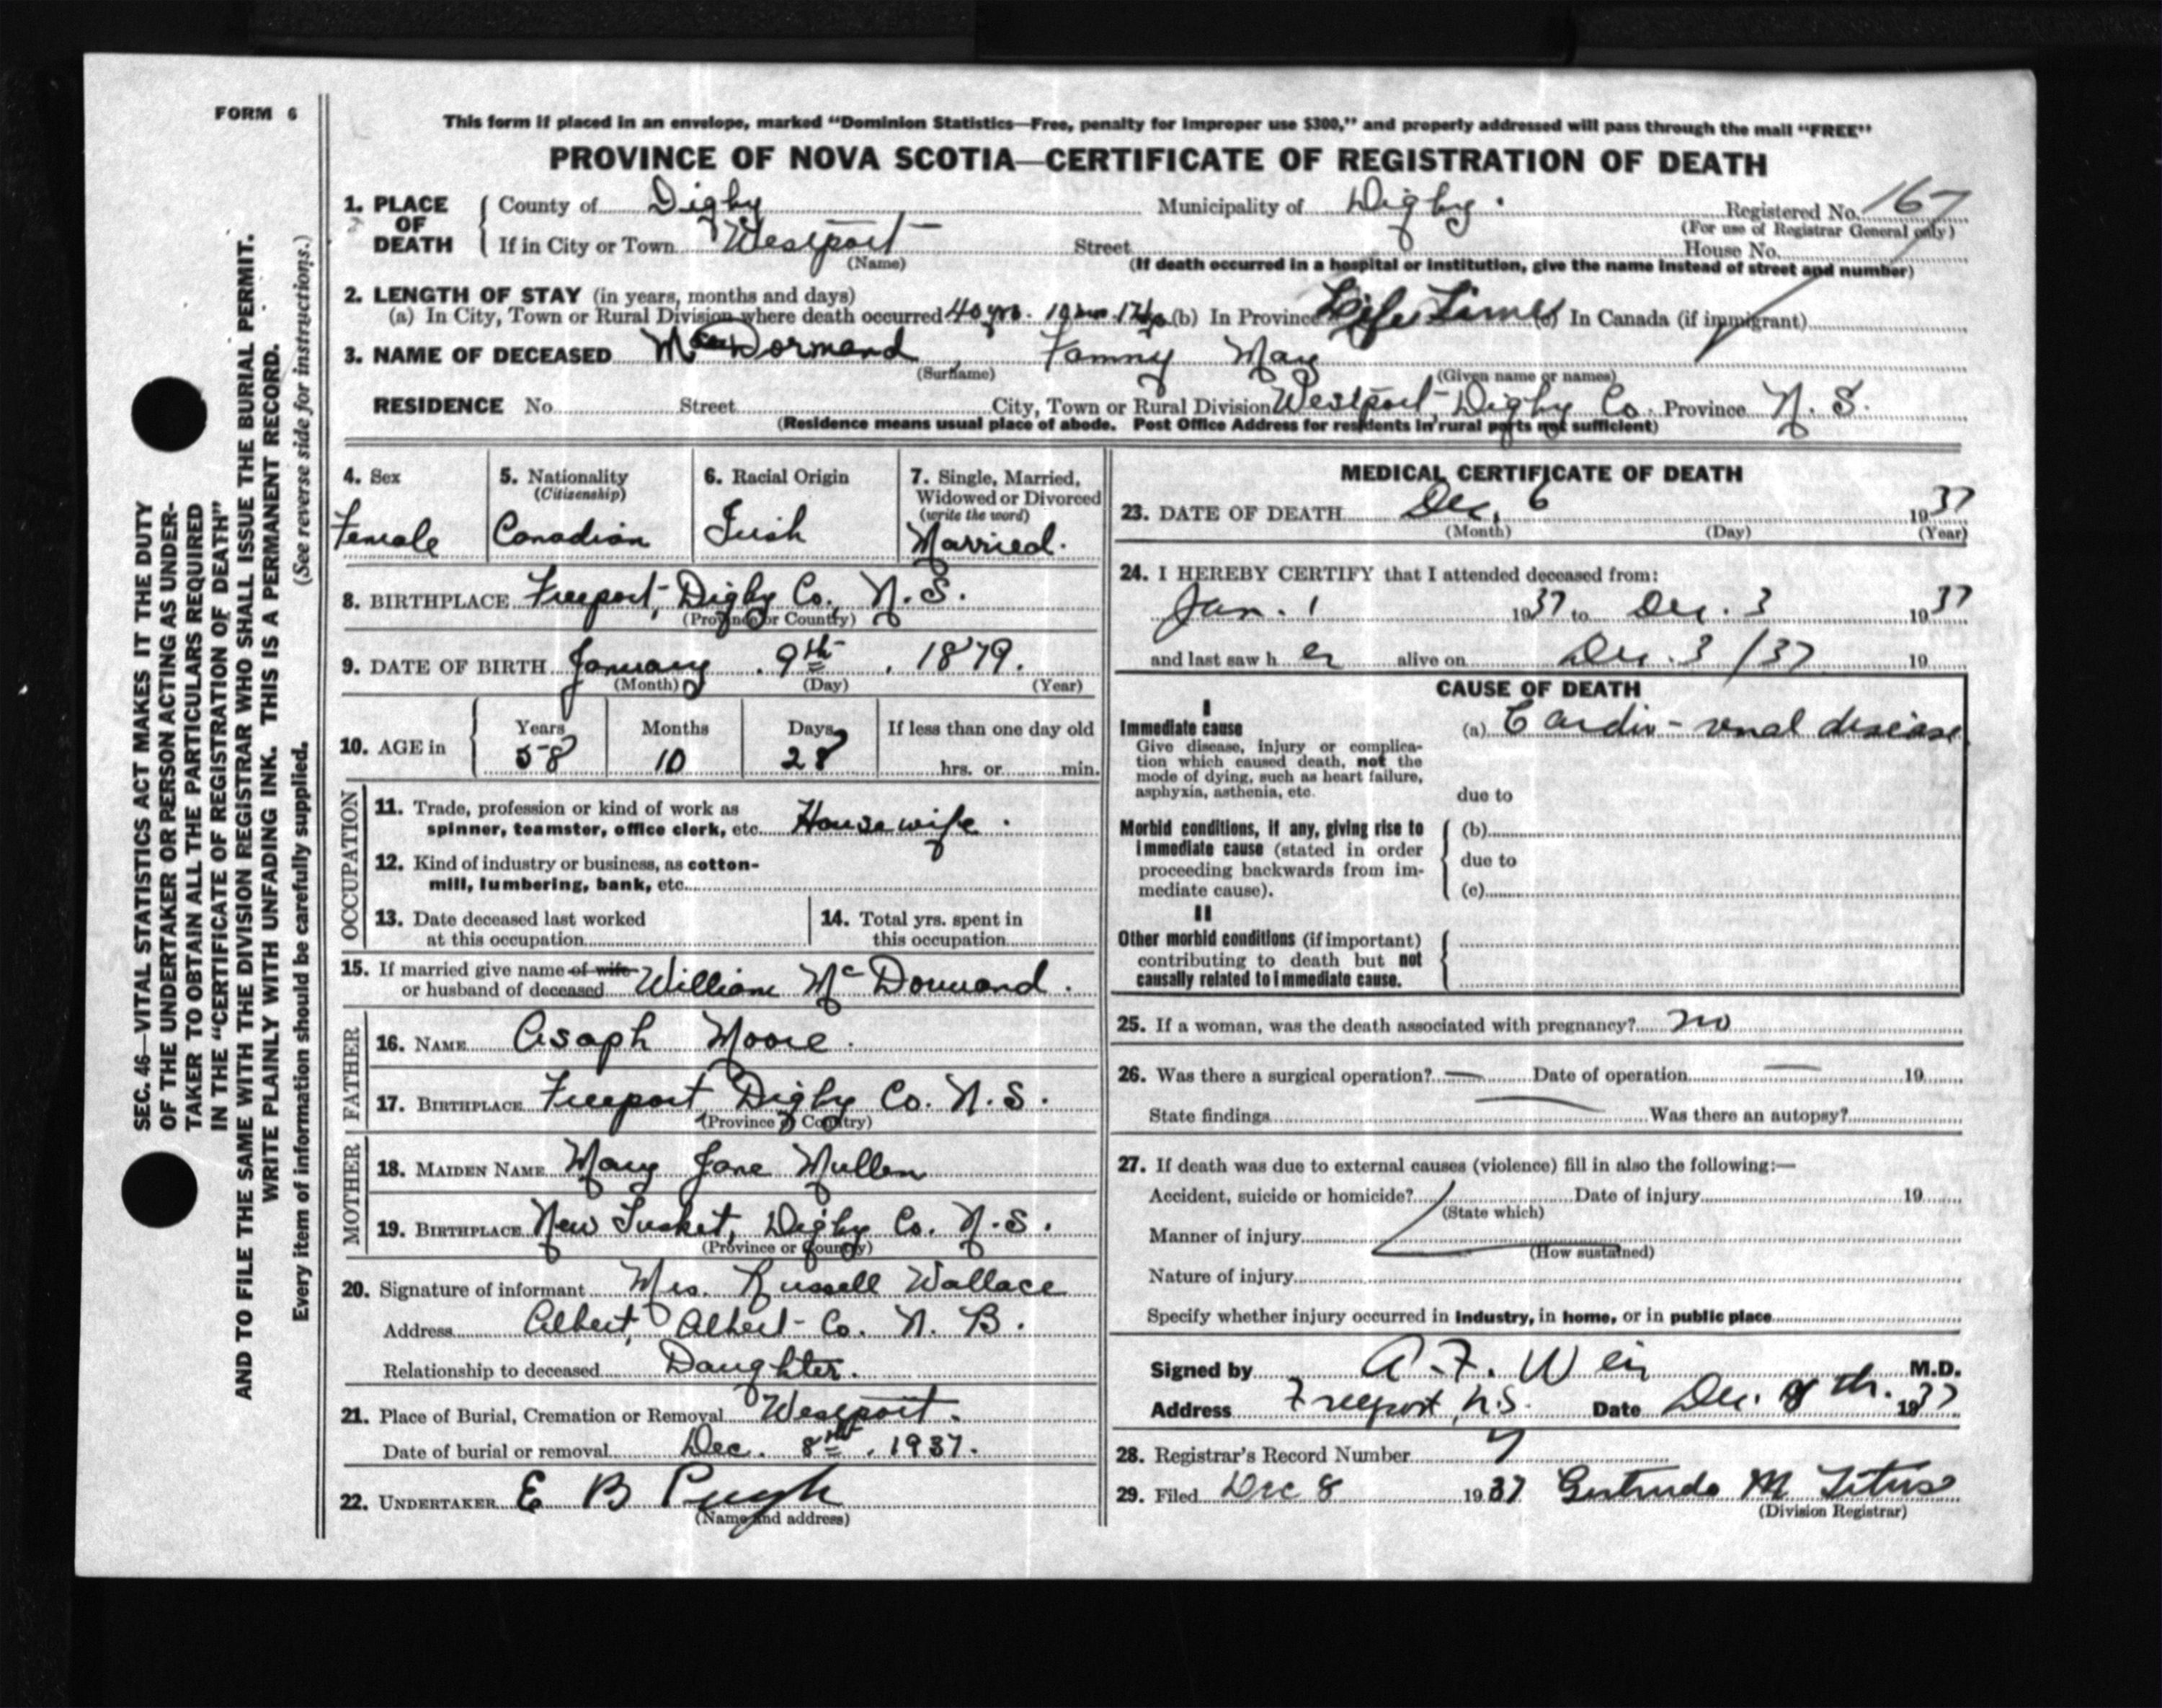 FORM 6
This form if placed in an envelope, marked “Dominion Statistics—Free, penalty for improper use $300,” and properly addressed will pass through the mail “FREE”
PROVINCE OF NOVA SCOTIA—CERTIFICATE OF REGISTRATION OF DEATH
1. PLACE OF DEATH County of Digby Municipality of Digby. Registered No. 167
(For use of Registrar General only)
If in City or Town Westport Street House No.
(Name) (If death occurred in a hospital or institution, give the name instead of street and number)
2. LENGTH OF STAY (in years, months and days)
(a) In City, Town or Rural Division where death occurred 40 yrs. 10 mo. (b) In Province Life Time (c) In Canada (if immigrant)
3. NAME OF DECEASED MacDormand, Fanny May
(Surname) (Given name or names)
RESIDENCE No. Street City, Town or Rural Division Westport, Digby Co. Province N. S.
(Residence means usual place of abode. Post Office Address for residents in rural parts not sufficient)
4. Sex Female
5. Nationality (Citizenship) Canadian
6. Racial Origin Irish
7. Single, Married, Widowed or Divorced (write the word) Married.
8. BIRTHPLACE Freeport, Digby Co., N. S.
(Province or Country)
9. DATE OF BIRTH January 9th, 1879.
(Month) (Day) (Year)
10. AGE in Years 58 Months 10 Days 28 If less than one day old hrs. or min.
OCCUPATION
11. Trade, profession or kind of work as
spinner, teamster, office clerk, etc. Housewife.
12. Kind of industry or business, as cotton-
mill, lumbering, bank, etc.
13. Date deceased last worked
at this occupation
14. Total yrs. spent in
this occupation
15. If married give name of wife
or husband of deceased William McDormand.
FATHER
16. NAME Asaph Moore.
17. BIRTHPLACE Freeport Digby Co. N. S.
(Province or Country)
MOTHER
18. MAIDEN NAME Mary Jane Mullen
19. BIRTHPLACE New Tusket, Digby Co. N. S.
(Province or Country)
20. Signature of informant Mrs. Russell Wallace
Address Albert, Albert Co. N. B.
Relationship to deceased Daughter.
21. Place of Burial, Cremation or Removal Westport.
Date of burial or removal Dec. 8th, 1937.
22. UNDERTAKER E B Pugh
(Name and address)
MEDICAL CERTIFICATE OF DEATH
23. DATE OF DEATH Dec. 6 1937
(Month) (Day) (Year)
24. I HEREBY CERTIFY that I attended deceased from:
Jan. 1 1937 to Dec. 3 1937
and last saw h er alive on Dec. 3 /37 19
CAUSE OF DEATH
I
Immediate cause (a) Cardio-renal disease
Give disease, injury or complica-
tion which caused death, not the
mode of dying, such as heart failure,
asphyxia, asthenia, etc.
due to
Morbid conditions, if any, giving rise to (b)
immediate cause (stated in order
proceeding backwards from im- due to
mediate cause). (c)
II
Other morbid conditions (if important)
contributing to death but not
causally related to immediate cause.
25. If a woman, was the death associated with pregnancy? no
26. Was there a surgical operation? — Date of operation — 19
State findings Was there an autopsy?
27. If death was due to external causes (violence) fill in also the following:—
Accident, suicide or homicide? Date of injury 19
(State which)
Manner of injury
(How sustained)
Nature of injury
Specify whether injury occurred in industry, in home, or in public place
Signed by A. F. Weir M.D.
Address Freeport, N.S. Date Dec. 8th. 1937
28. Registrar's Record Number 7
29. Filed Dec 8 1937 Gertrude M Titus
(Division Registrar)
SEC. 46—VITAL STATISTICS ACT MAKES IT THE DUTY
OF THE UNDERTAKER OR PERSON ACTING AS UNDER-
TAKER TO OBTAIN ALL THE PARTICULARS REQUIRED
IN THE “CERTIFICATE OF REGISTRATION OF DEATH”
AND TO FILE THE SAME WITH THE DIVISION REGISTRAR WHO SHALL ISSUE THE BURIAL PERMIT.
WRITE PLAINLY WITH UNFADING INK. THIS IS A PERMANENT RECORD.
Every item of information should be carefully supplied. (See reverse side for instructions.)